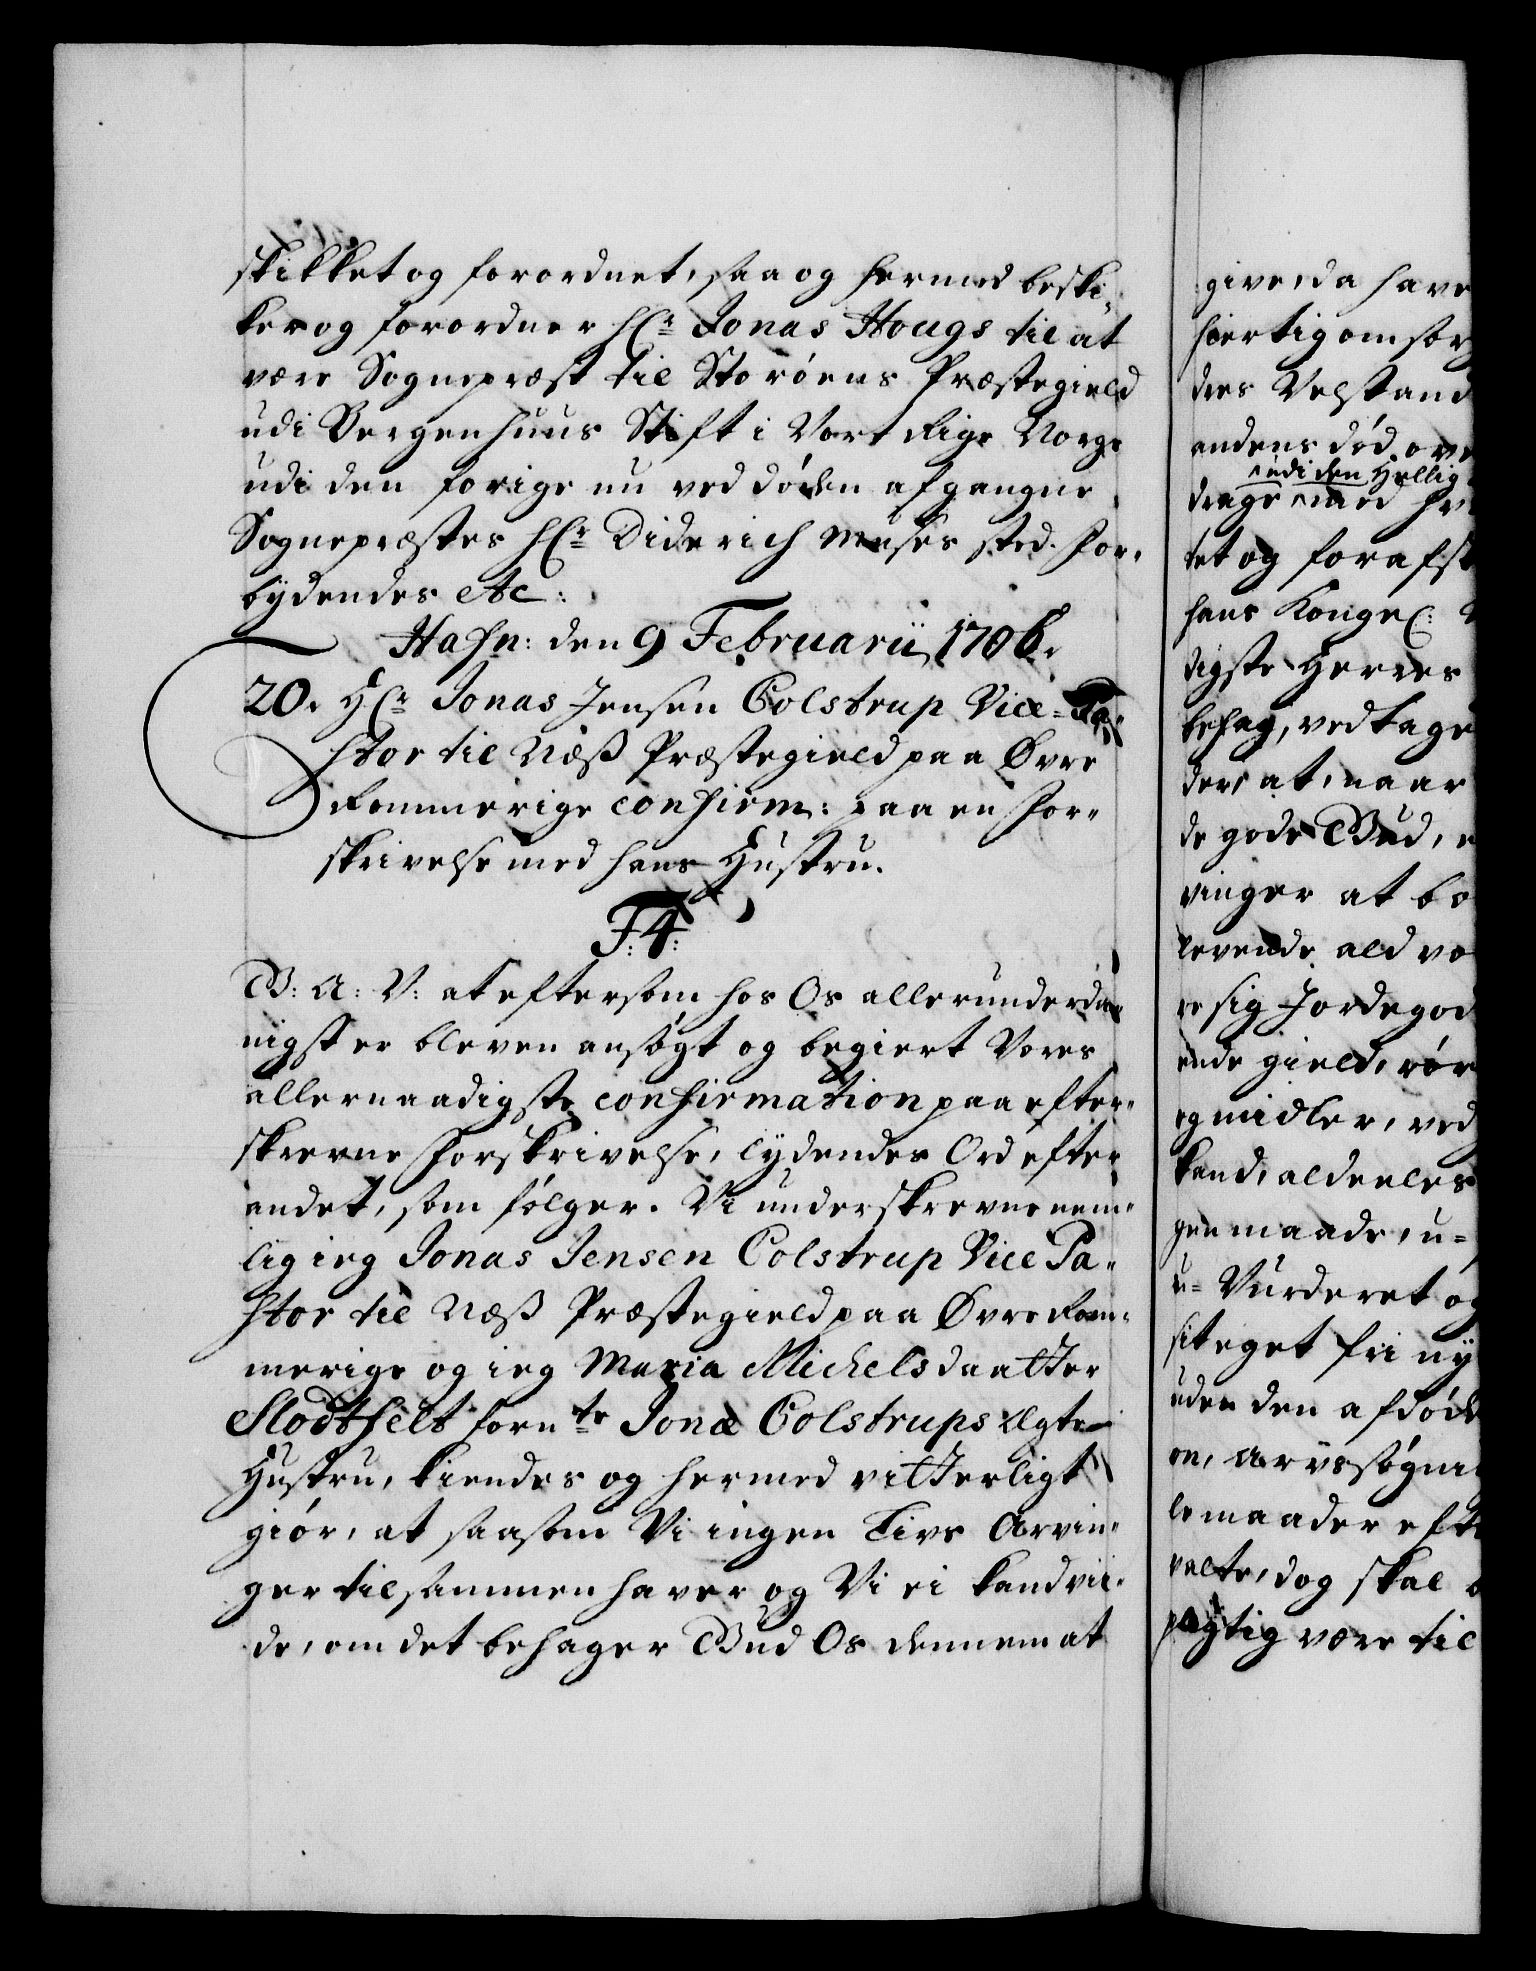 skikket og forordnet, saa og hermed beski-
ker og forordner Hr Jonas Hougs til at
være Sognepræst til Storöens Præstegield
udi Bergenhuus Stift i Vort Rige Norge
udi den forige nu ved döden afgangne
Sognepræstes Hr Diderich Muses sted. For-
bydendes etc:
Hafn: den 9 Februarii 1706.
20. Hr Jonas Jensen Colstrup Vice-Pa-
stor til Næß Præstegield paa Øvre
Rommerige confirm: paa en For-
skrivelse med hans Hustru.
F: 4:
G: A: V: at eftersom hos Os allerunderda-
nigst er bleven ansögt og begiert Vores
allernaadigste confirmation paa efter-
skrevne Forskrivelse, lydendes Ord efter
andet, som fölger. Vi underskrevne nem-
lig ieg Jonas Jensen Colstrup Vice Pa-
stor til Næß Præstegield paa Øvre Rom-
merige og ieg Maria Michelsdaatter
Slodtfelt fornte Jonæ Colstrups Ægte
Hustru, kiendes og hermed vitterligt
giör, at saasom Vi ingen Livs Arvin-
ger tilsammen haver og Vi ei kand vii-
de, om det behager Gud Os dennem at
give, da have
hiertig omsor
dres Velstand
andens död ov
udi den Hellig
drage med hv
tet og for afsk
hans Kongel:
digste Herres
behag, vedtage
der, at, naar
de gode Gud, e
vinger at be
levende, ald vo
re sig Jordegod
ende gield, rör
eg midler, ved
kand, aldeeles
gen maade, u-
u- Vurderet og
sit eget fri ny
uden den afdöde
en, Arvssögni
le maader eft
valte, dog skal
pligtig være til